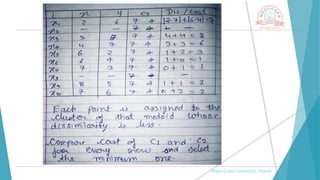 i x y C2 Dis / Cost
x1 2 6 7 4 |2-7|+|6-4|=7
7 4
x3 3 8 7 4 4+4 = 8
x4 4 7 7 4 3+3 = 6
x5 6 2 7 4 1+2 = 3
x6 6 4 7 4 1+0 = 1
x7 7 3 7 4 0+1 = 1
7
x9 8 5 7 4 1+1 = 2
x10 7 6 7 4 0+2 = 2
Each point is assigned to the
cluster of that medoid whose
dissimilarity is less.
Compare cost of C1 and C2
for every row and select
the minimum one.